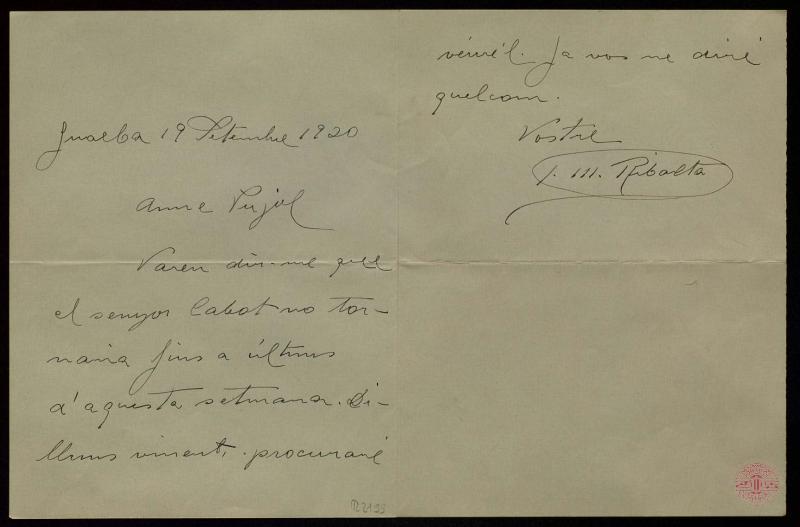 Gualba 19 Setembre 1920
Amic Pujol
Varen dir-me que
el senyor Cabot no tor-
naria fins a últims
d'aquesta setmana. Di-
lluns vinent, procuraré
véurel. Ja vos ne diré
quelcom.
Vostre
J. M. Ribalta
R 2199